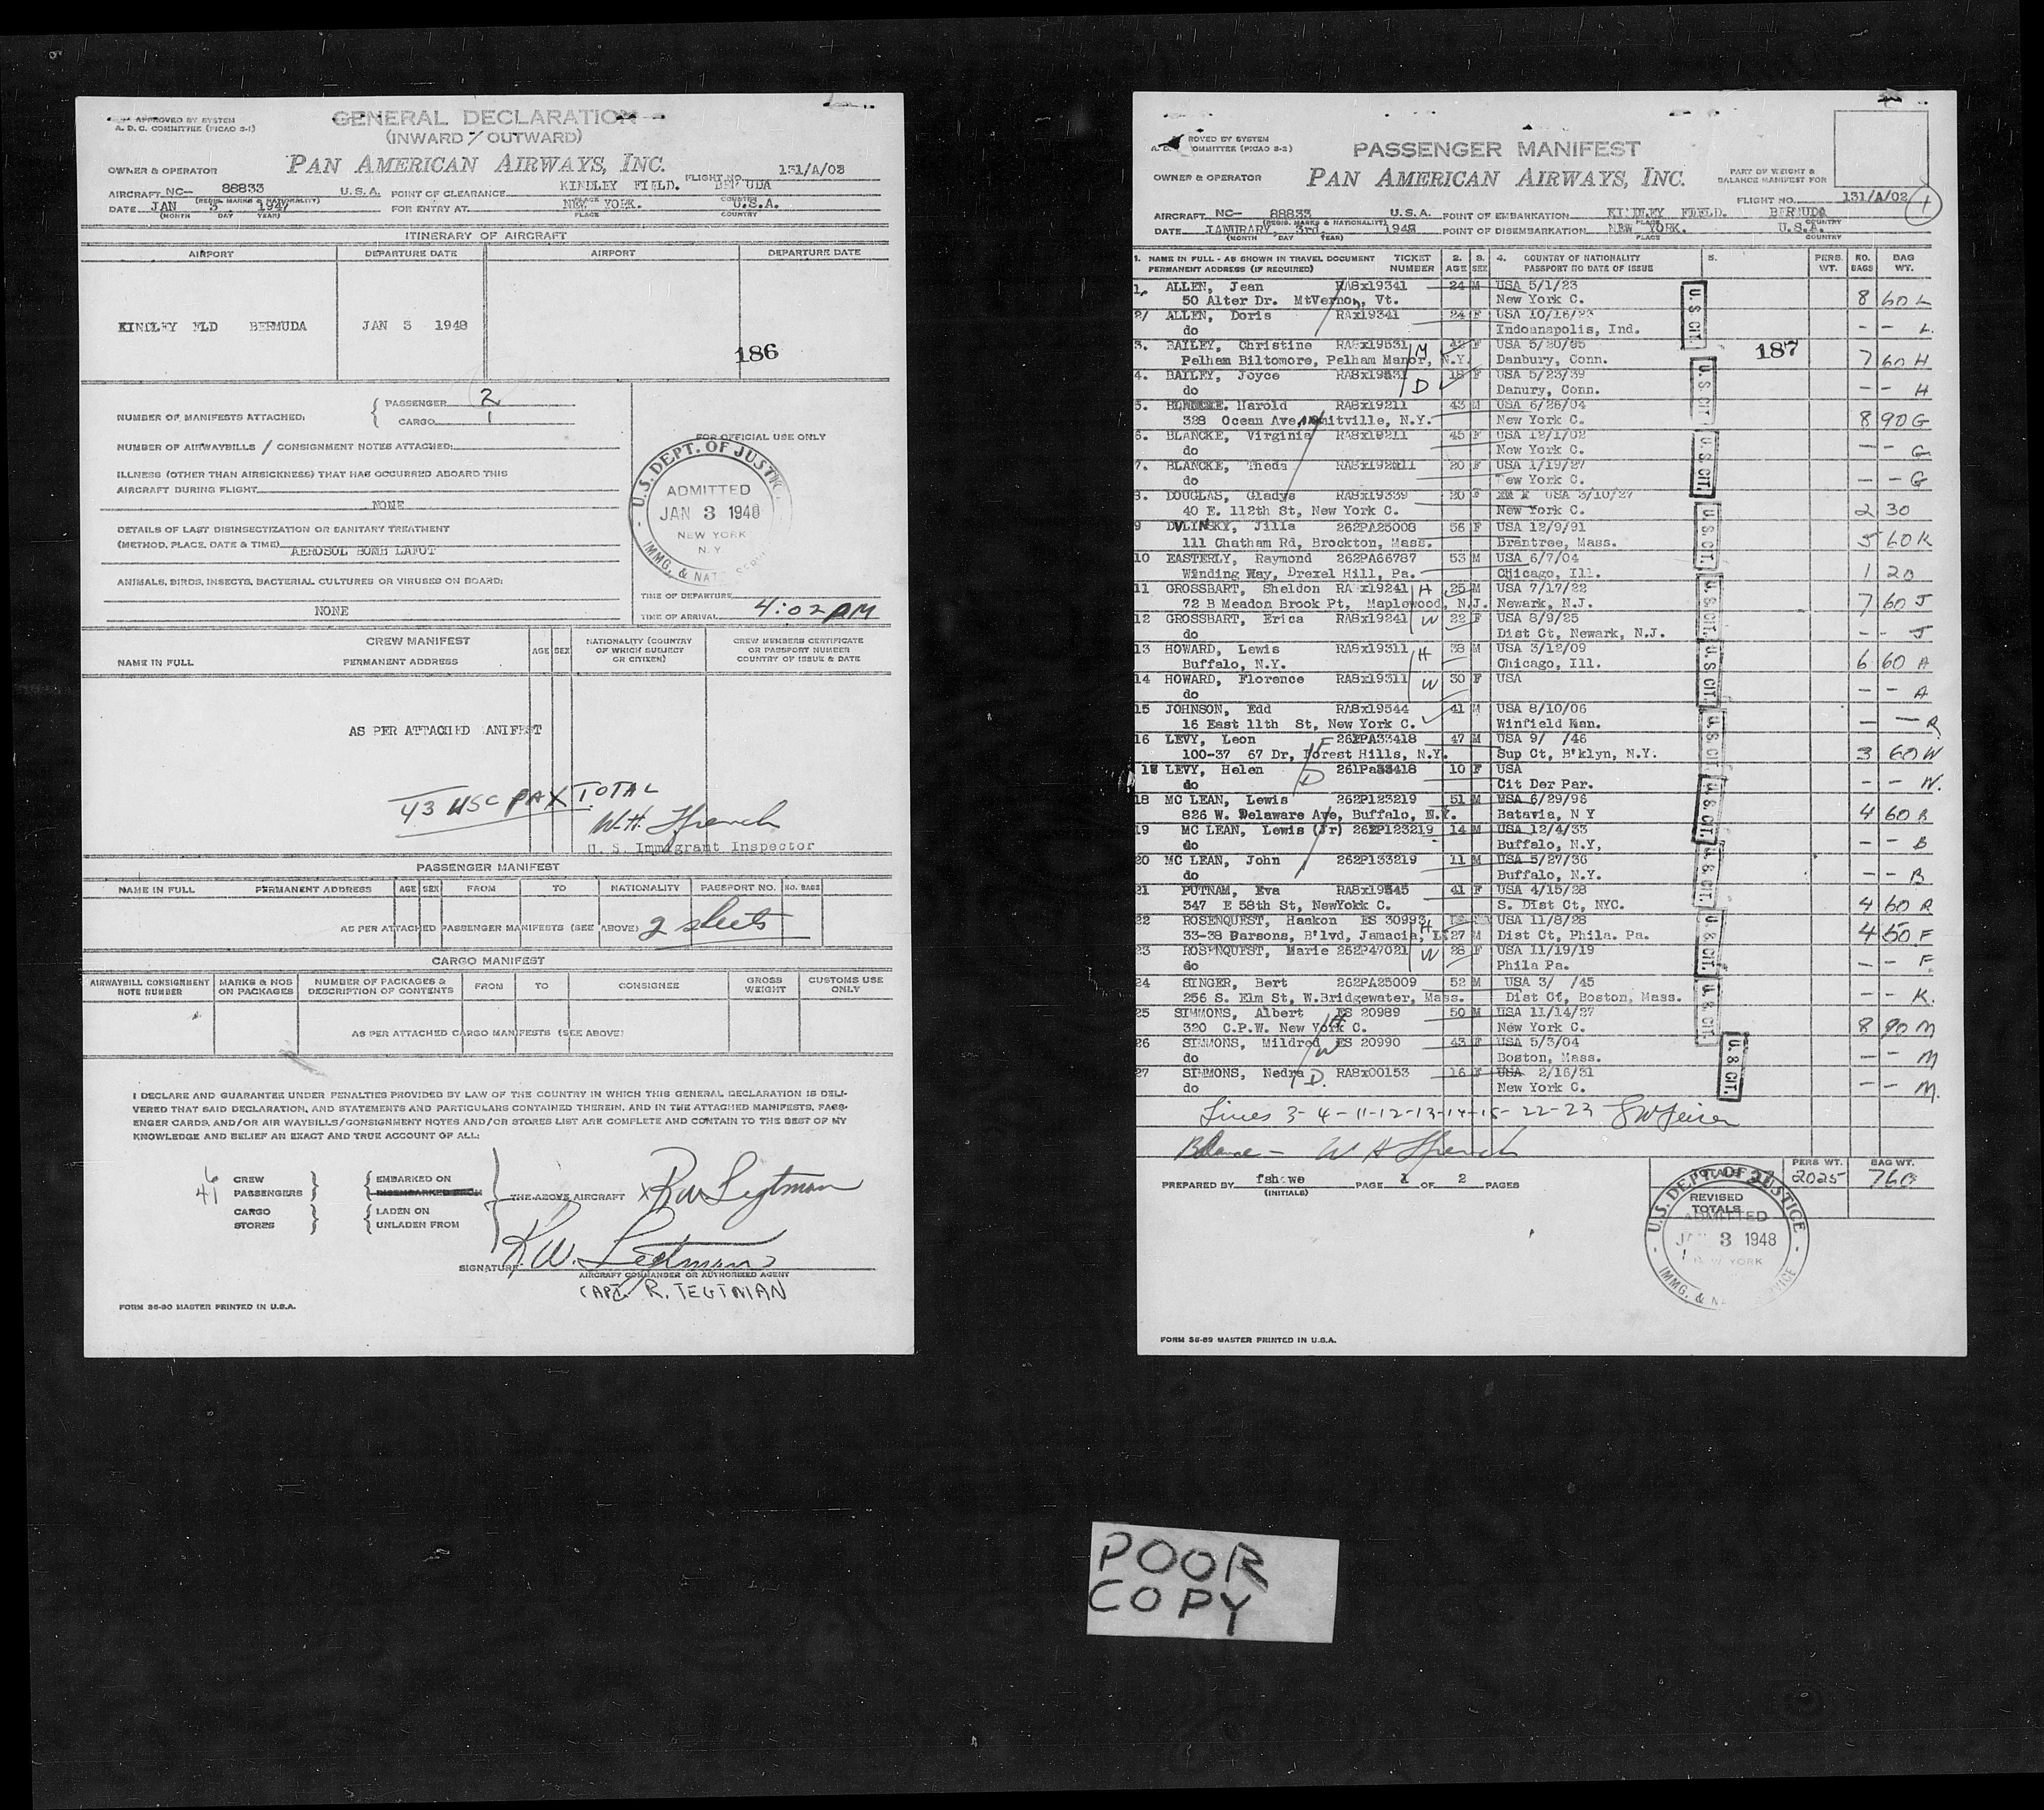 APPROVED BY SYSTEM
A. D. C. COMMITTEE (PICAO S-1)
GENERAL DECLARATION
(INWARD / OUTWARD)
OWNER & OPERATOR PAN AMERICAN AIRWAYS, INC. FLIGHT NO. 131/A/02
AIRCRAFT NC- 88833 U.S.A. POINT OF CLEARANCE KINDLEY FIELD. BERMUDA
(REGIS. MARKS & NATIONALITY) PLACE COUNTRY
DATE JAN 3 1947 FOR ENTRY AT NEW YORK. U.S.A.
(MONTH DAY YEAR) PLACE COUNTRY
ITINERARY OF AIRCRAFT
AIRPORT DEPARTURE DATE AIRPORT DEPARTURE DATE
KINDLEY FLD BERMUDA JAN 3 1948
186
NUMBER OF MANIFESTS ATTACHED: PASSENGER 2
CARGO 1
NUMBER OF AIRWAYBILLS / CONSIGNMENT NOTES ATTACHED:
ILLNESS (OTHER THAN AIRSICKNESS) THAT HAS OCCURRED ABOARD THIS
AIRCRAFT DURING FLIGHT
NONE
DETAILS OF LAST DISINSECTIZATION OR SANITARY TREATMENT
(METHOD, PLACE, DATE & TIME) AEROSOL BOMB
ANIMALS, BIRDS, INSECTS, BACTERIAL CULTURES OR VIRUSES ON BOARD:
NONE
FOR OFFICIAL USE ONLY
U.S. DEPT. OF JUSTICE
ADMITTED
JAN 3 1948
NEW YORK
N. Y.
IMMG. & NAT. SERVICE
TIME OF DEPARTURE
TIME OF ARRIVAL 4:02 PM
CREW MANIFEST
NAME IN FULL PERMANENT ADDRESS AGE SEX NATIONALITY (COUNTRY OF WHICH SUBJECT OR CITIZEN) CREW MEMBERS CERTIFICATE OR PASSPORT NUMBER COUNTRY OF ISSUE & DATE
AS PER ATTACHED MANIFEST
43 USC PAX TOTAL
W.H. French
U. S. Immigrant Inspector
PASSENGER MANIFEST
NAME IN FULL PERMANENT ADDRESS AGE SEX FROM TO NATIONALITY PASSPORT NO. NO. BAGS
AS PER ATTACHED PASSENGER MANIFESTS (SEE ABOVE) 2 sheets
CARGO MANIFEST
AIRWAYBILL CONSIGNMENT NOTE NUMBER MARKS & NOS ON PACKAGES NUMBER OF PACKAGES & DESCRIPTION OF CONTENTS FROM TO CONSIGNEE GROSS WEIGHT CUSTOMS USE ONLY
AS PER ATTACHED CARGO MANIFESTS (SEE ABOVE)
I DECLARE AND GUARANTEE UNDER PENALTIES PROVIDED BY LAW OF THE COUNTRY IN WHICH THIS GENERAL DECLARATION IS DELI-
VERED THAT SAID DECLARATION, AND STATEMENTS AND PARTICULARS CONTAINED THEREIN, AND IN THE ATTACHED MANIFESTS, PASS-
ENGER CARDS, AND/OR AIR WAYBILLS/CONSIGNMENT NOTES AND/OR STORES LIST ARE COMPLETE AND CONTAIN TO THE BEST OF MY
KNOWLEDGE AND BELIEF AN EXACT AND TRUE ACCOUNT OF ALL:
6 CREW EMBARKED ON
41 PASSENGERS DISEMBARKED FROM THE ABOVE AIRCRAFT X RW Tegtman
CARGO LADEN ON
STORES UNLADEN FROM
SIGNATURE R.W. Tegtman
AIRCRAFT COMMANDER OR AUTHORIZED AGENT
CAPT. R. TEGTMAN
FORM 36-90 MASTER PRINTED IN U.S.A.
ROVED BY SYSTEM
OMMITTEE (PICAO S-2)
PASSENGER MANIFEST
OWNER & OPERATOR PAN AMERICAN AIRWAYS, INC. PART OF WEIGHT & BALANCE MANIFEST FOR
FLIGHT NO. 131/A/02 1
AIRCRAFT NC- 88833 U.S.A. POINT OF EMBARKATION KINDLEY FIELD. BERMUDA
(REGIS. MARKS & NATIONALITY) PLACE COUNTRY
DATE JANURARY, 3rd. 1948 POINT OF DISEMBARKATION NEW YORK. U.S.A.
(MONTH DAY YEAR) PLACE COUNTRY
1. NAME IN FULL - AS SHOWN IN TRAVEL DOCUMENT TICKET 2. 3. 4. COUNTRY OF NATIONALITY 5. PERS. NO. BAG
PERMANENT ADDRESS (IF REQUIRED) NUMBER AGE SEX PASSPORT NO DATE OF ISSUE WT. BAGS WT.
1. ALLEN, Jean RA8x19341 24 M USA 5/1/23
50 Alter Dr. MtVernon, Vt. New York C. 8 60 L
2/ ALLEN, Doris RAx19341 24 F USA 10/16/23
do Indoanapolis, Ind. - - L
3. BAILEY, Christine RA8x19531 M 42 F USA 5/20/05
Pelham Biltomore, Pelham Manor, N.Y. Danbury, Conn. 187 7 60 H
4. BAILEY, Joyce RA8x19531 D 18 F USA 5/23/39
do Danury, Conn. - - H
5. BLANCKE. Harold RA8x19211 43 M USA 6/26/04
328 Ocean Ave, Amitville, N.Y. New York C. 8 90 G
6. BLANCKE, Virginia RA8x19211 45 F USA 12/1/02
do New York C. - G
7. BLANCKE, Theda RA8x19211 20 F USA 1/19/27
do New York C. - - G
8. DOUGLAS, Gladys RA8x19339 20 F USA 3/10/27
40 E. 112th St, New York C. New York C. 2 30
9 DVLINSKY, Jilla 262PA25008 56 F USA 12/9/91
111 Chatham Rd, Brockton, Mass. Brantree, Mass. 5 60 K
10 EASTERLY, Raymond 262PA66787 53 M USA 6/7/04
Winding Way, Drexel Hill, Pa. Chicago, Ill. 1 20
11 GROSSBART, Sheldon RA x19241 H 25 M USA 7/17/22
72 B Meadon Brook Pt, Maplewood, N.J. Newark, N.J. 7 60 J
12 GROSSBART, Erica RA8x19241 W 22 F USA 8/9/25
do Dist Ct, Newark, N.J. - - J
13 HOWARD, Lewis RA8x19311 H 38 M USA 3/12/09
Buffalo, N.Y. Chicago, Ill. 6 60 A
14 HOWARD, Florence RA8x19311 W 30 F USA
do - - A
15 JOHNSON, Edd RA8x19544 41 M USA 8/10/06
16 East 11th St, New York C. Winfield Kan. - - R
16 LEVY, Leon F 262PA33418 47 M USA 9/ /46
100-37 67 Dr, Forest Hills, N.Y. Sup Ct, B'klyn, N.Y. 3 60 W
17 LEVY, Helen D 261Pa33418 10 F USA
do Cit Der Par. - - W.
18 MC LEAN, Lewis 262P123219 51 M USA 6/29/96
826 W. Delaware Ave, Buffalo, N.Y. Batavia, N Y 4 60 B
19 MC LEAN, Lewis (Jr) 262P123219 14 M USA 12/4/33
do Buffalo, N.Y, - - B
20 MC LEAN, John 262P133219 11 M USA 5/27/36
do Buffalo, N.Y. - - B
21 PUTNAM, Eva RA8x19545 41 F USA 4/15/28
347 E 58th St, NewYokk C. S. Dist Ct, NYC. 4 60 R
22 ROSENQUEST, Haakon ES 30993 H USA 11/8/28
33-38 Parsons, B'lvd, Jamacia, L 27 M Dist Ct, Phila. Pa. 4 50 F
23 ROSENQUEST, Marie 252P47021 W 28 F USA 11/19/19
do Phila Pa. - - F
24 SINGER, Bert 262PA25009 52 M USA 3/ /45
256 S. Elm St, W.Bridgewater, Mass. Dist Ct, Boston, Mass. - - K.
25 SIMMONS, Albert ES 20989 50 M USA 11/14/27
320 C.P.W. New York C. H New York C. 8 90 M
26 SIMMONS, Mildred W ES 20990 43 F USA 5/3/04
do Boston, Mass. - - M
27 SIMMONS, Nedra D. RA8x00153 16 F USA 2/16/31
do New York C. - - M.
U. S. CIT.
U. S. CIT.
U. S. CIT.
U. S. CIT.
U. S. CIT.
U. S. CIT.
U. S. CIT.
U. S. CIT.
U. S. CIT.
U. S. CIT.
U. S. CIT.
U. S. CIT.
Lines 3-4-11-12-13-14-15-22-23
Balance - W H French
PREPARED BY fshowe PAGE 1 OF 2 PAGES TOTALS 27 PERS WT. 2025 BAG WT. 760
(INITIALS)
REVISED
TOTALS
U.S. DEPT. OF JUSTICE
ADMITTED
JAN 3 1948
NEW YORK
IMMG. & NAT. SERVICE
FORM 36-89 MASTER PRINTED IN U.S.A.
POOR
COPY